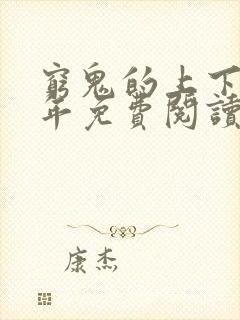 窮鬼的上下
年免費閱讀
康杰